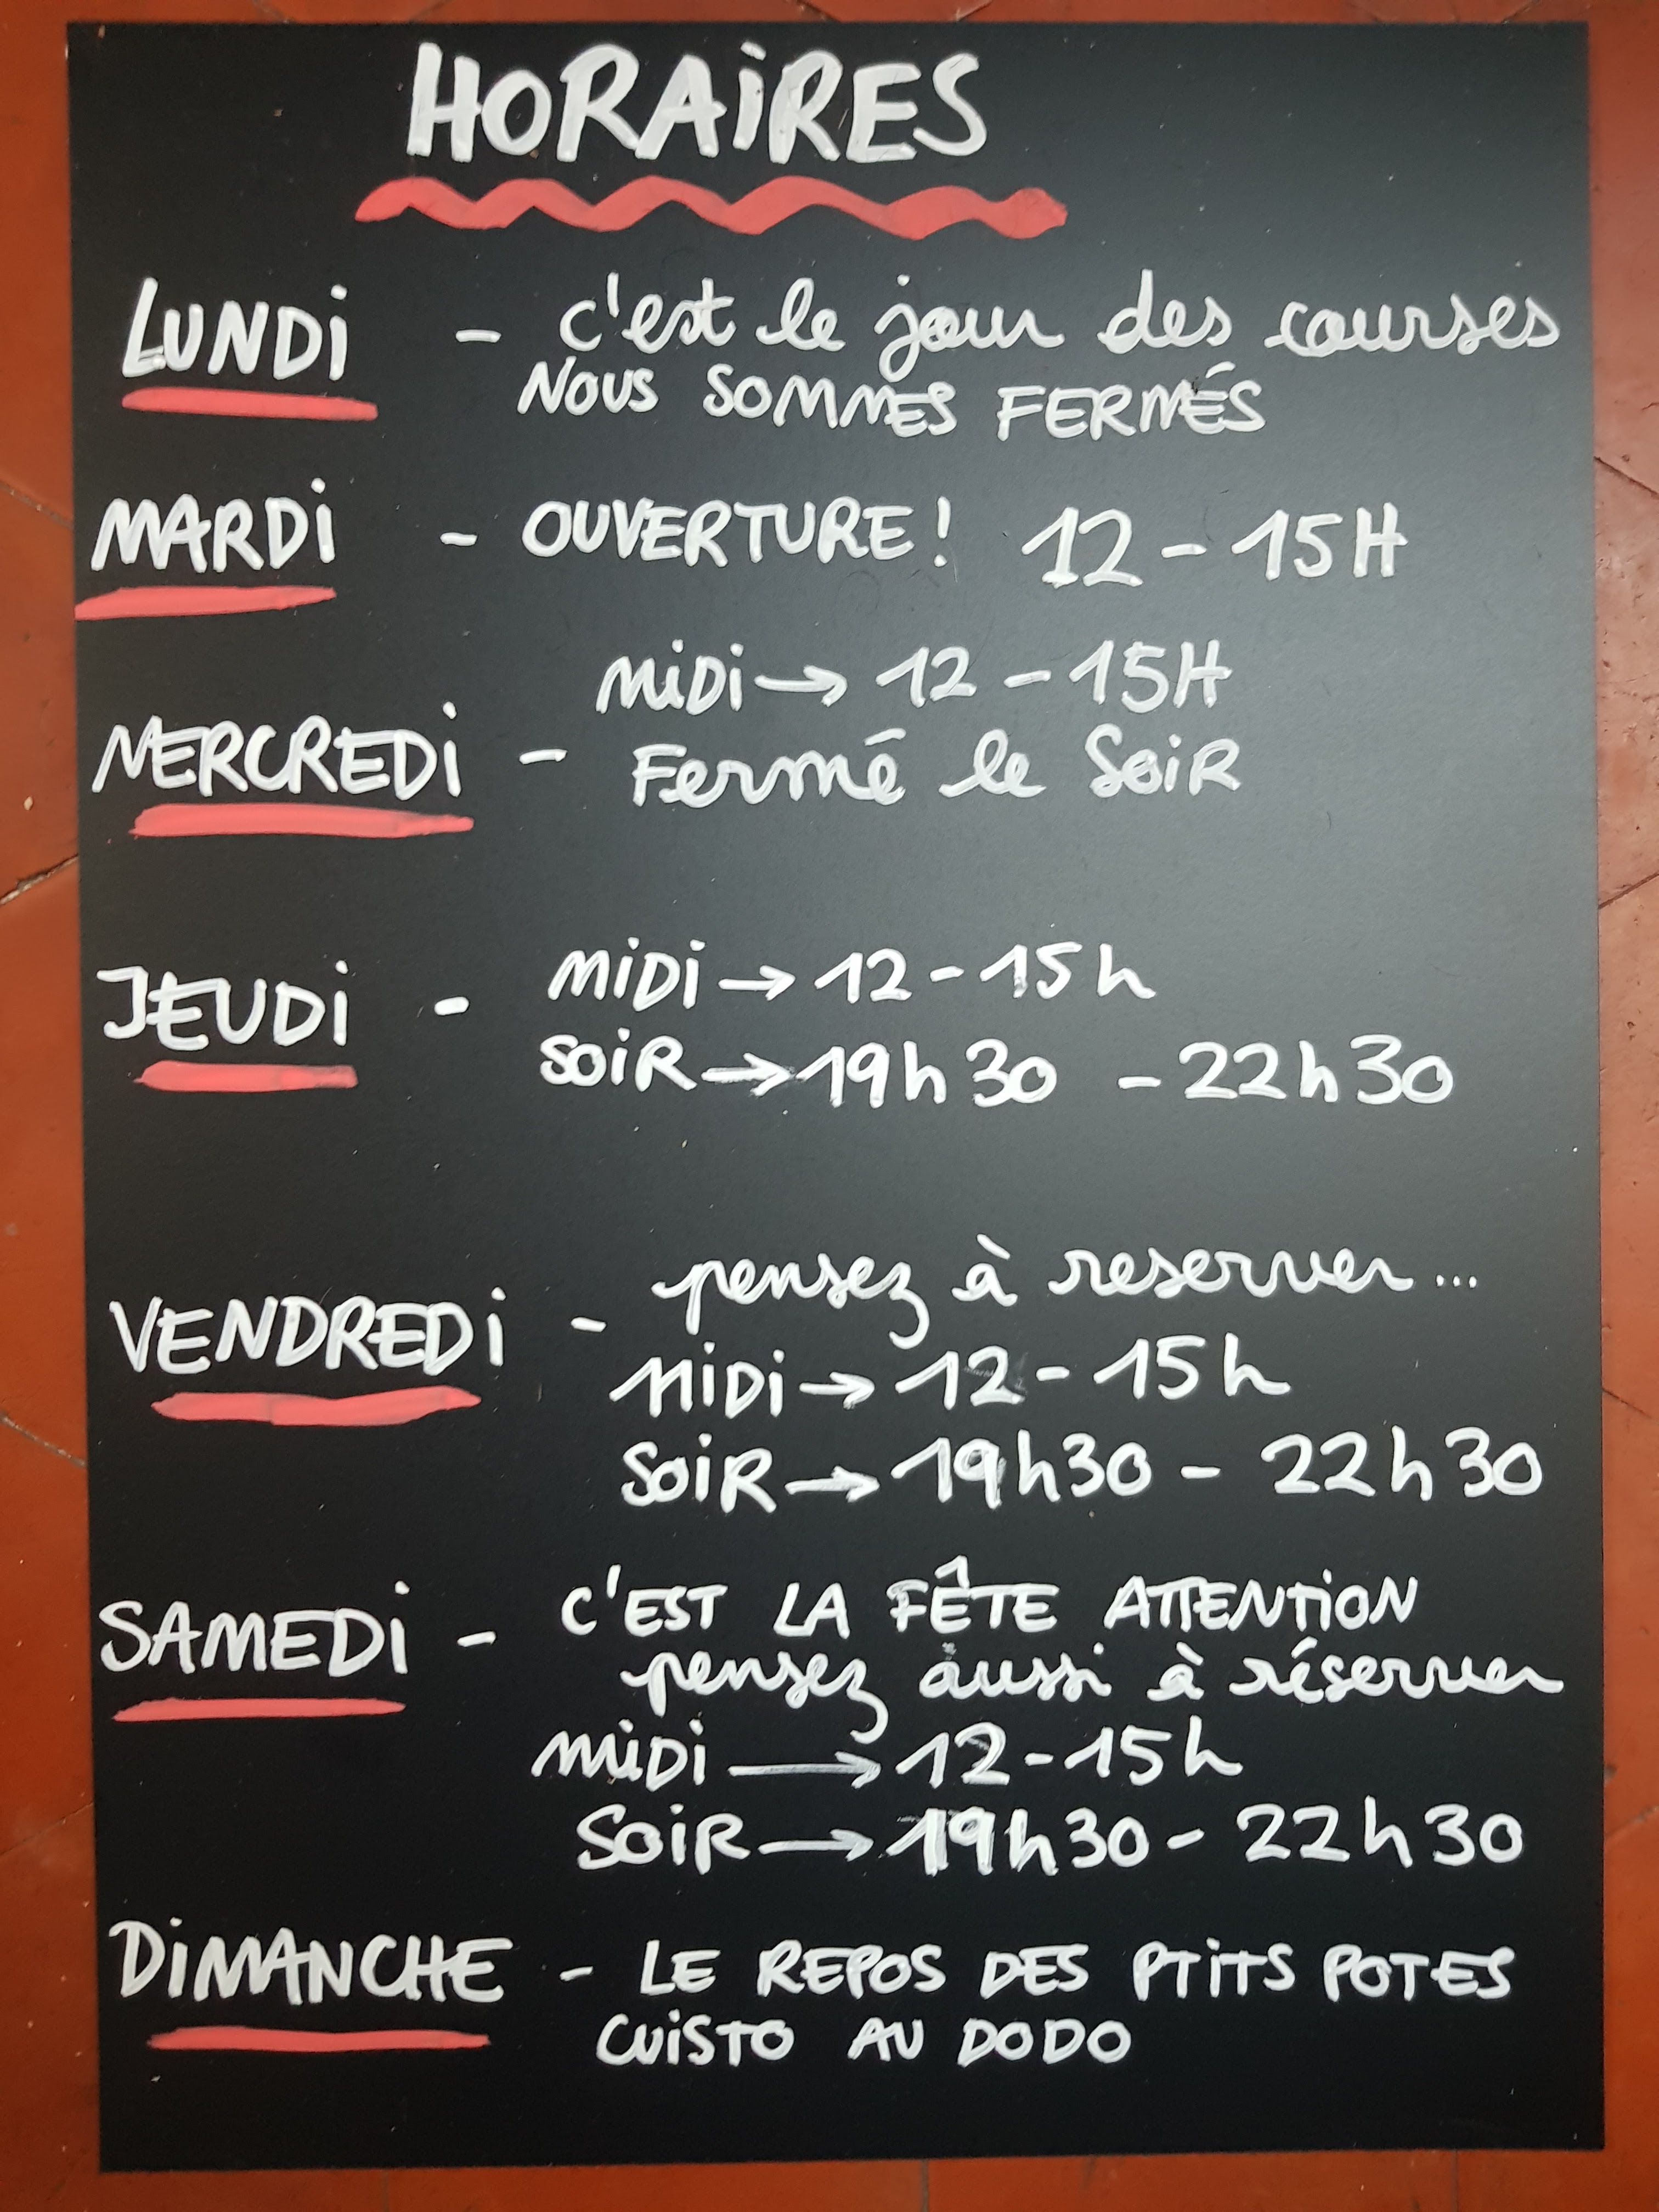 HORAiRES
LUNDi - c'est le jour des courses
NOUS SOMMES FERMÉS
MARDi - OUVERTURE! 12-15H
MiDi → 12-15H
MERCREDi - Fermé le SoiR
JEUDi - MiDi → 12-15h
SOiR → 19h30 - 22h30
pensez à reserver...
VENDREDi -
MiDi → 12-15h
SOiR → 19h30 - 22h30
SAMEDi - C'EST LA FÊTE ATTENTiON
pensez aussi à réserver
MiDi → 12-15h
SOiR → 19h30 - 22h30
DiMANCHE - LE REPOS DES PTiTS POTES
CUiSTO AU DODO